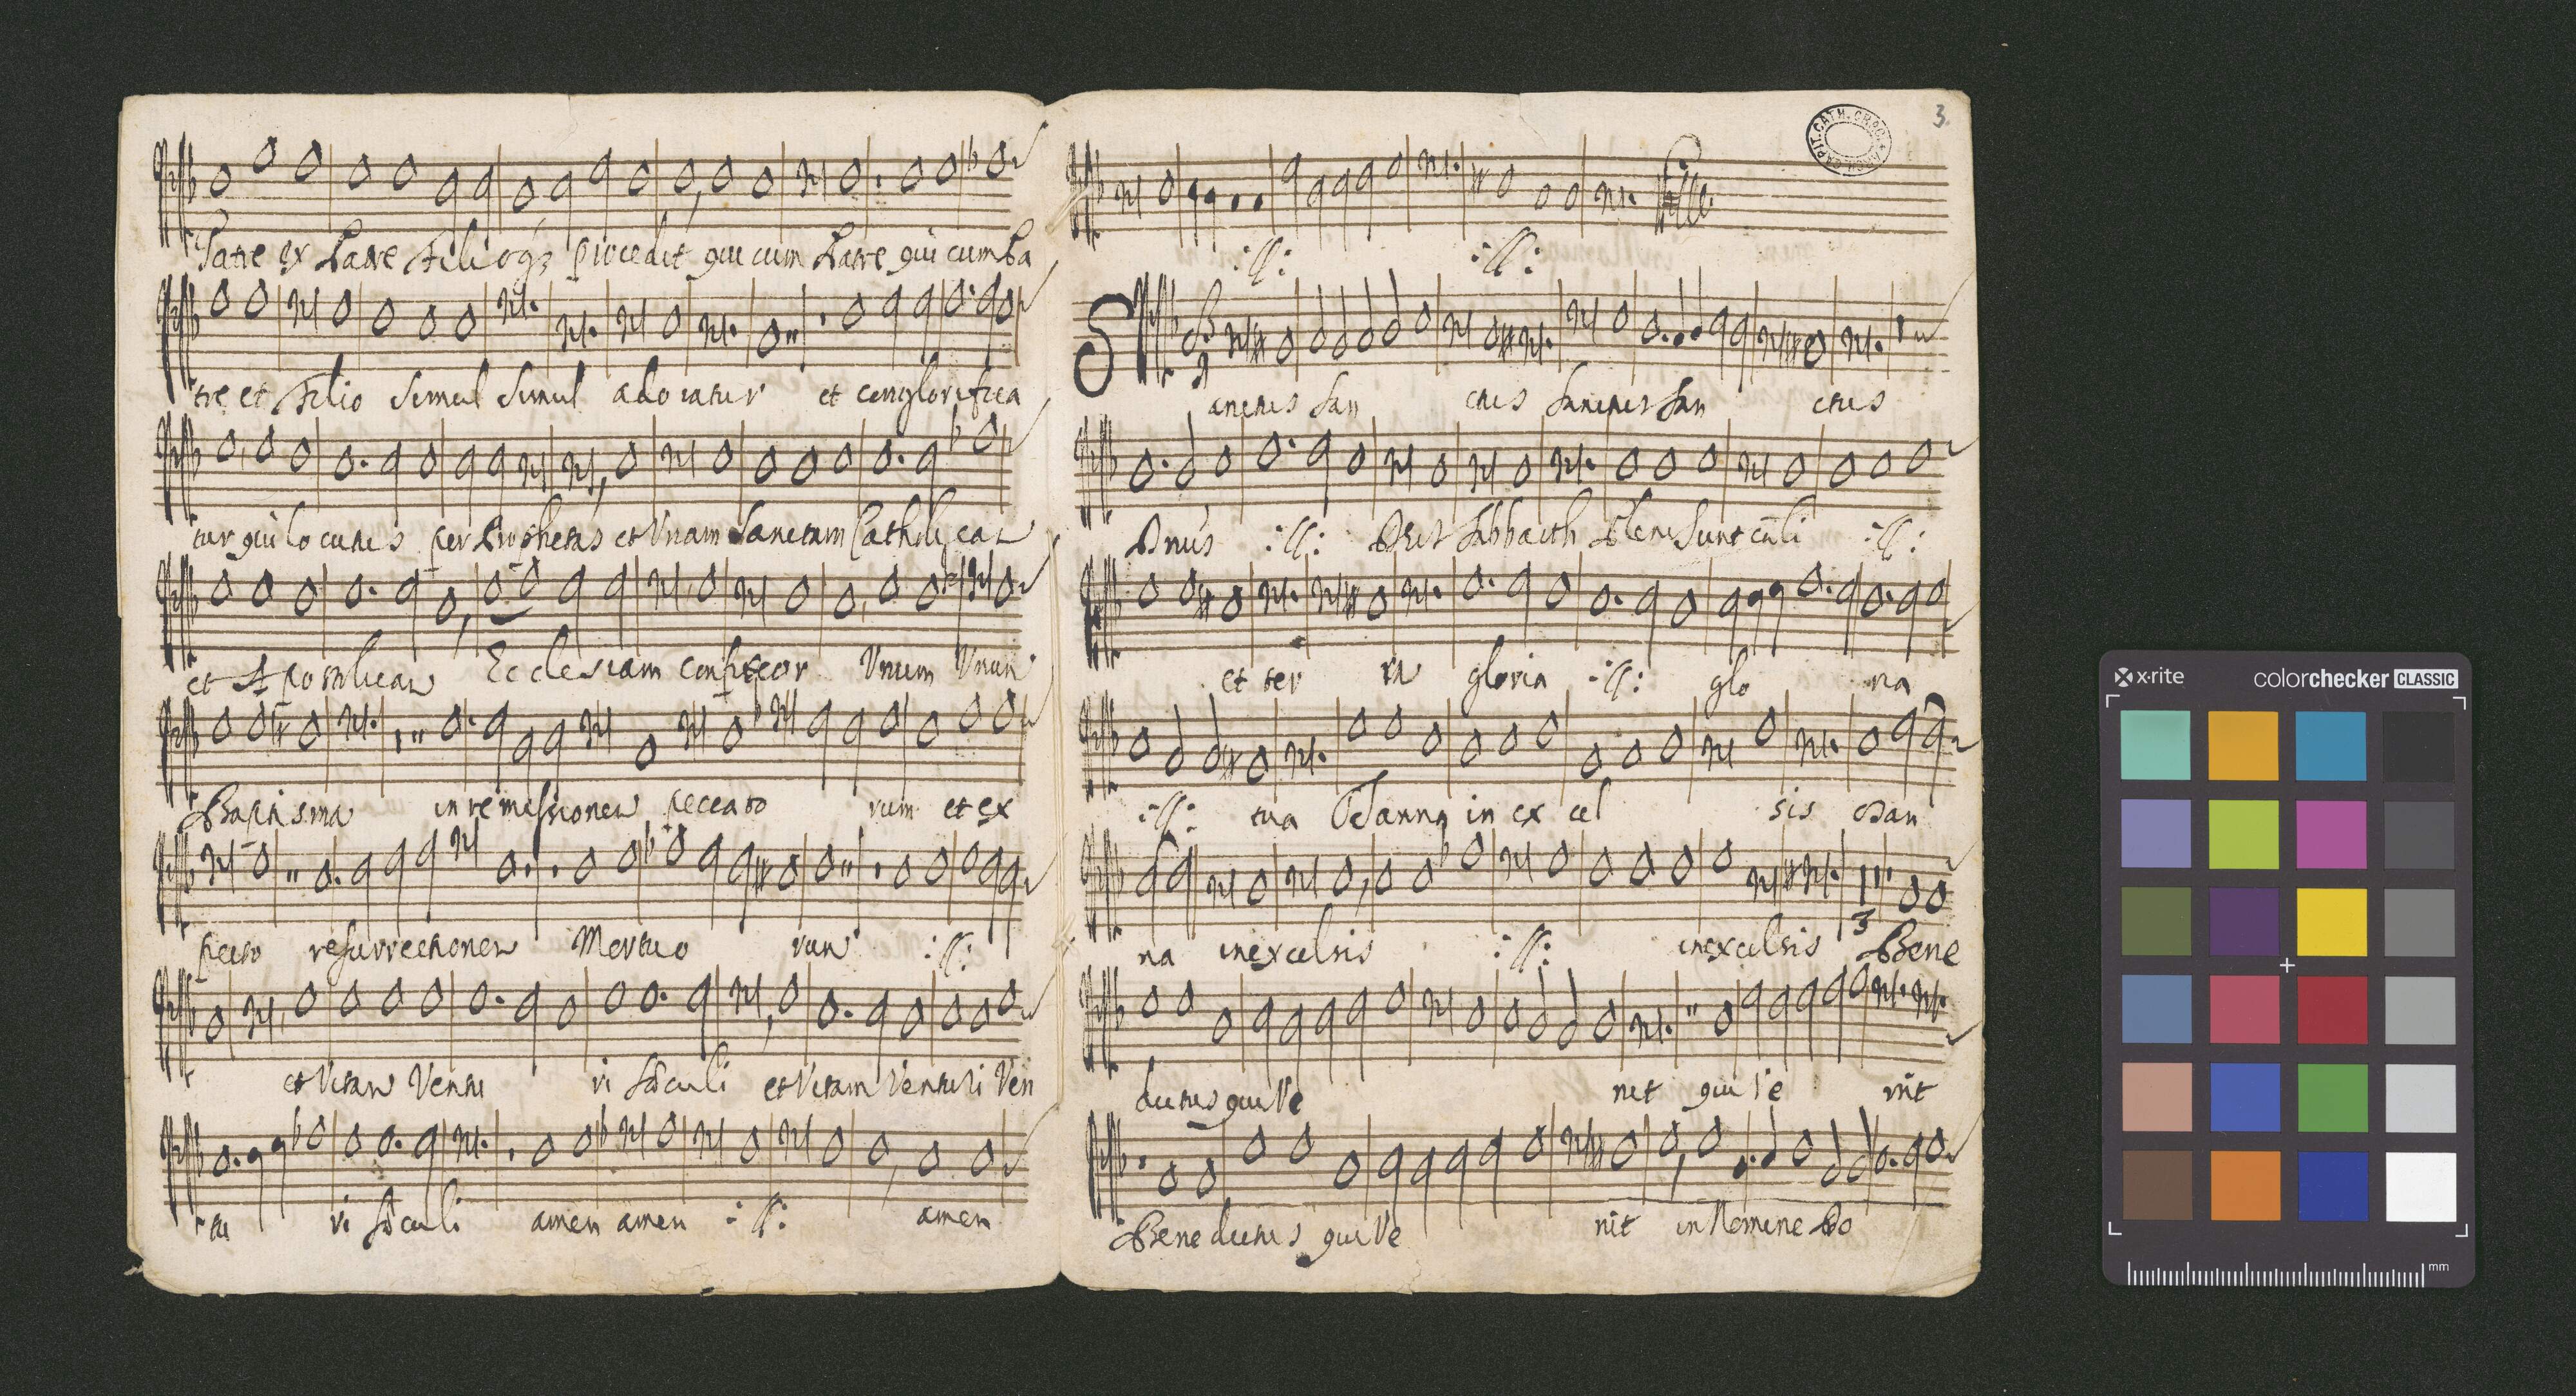 Patre ex Patre Filioq3 procedit qui cum Patre qui cum Pa
tre et Filio simul simul adoratur et conglorifica
tur qui locutus per Prophetas et Vnam Sanctam Catholicam
et Apostolicam Ecclesiam confiteor Vnum Vnum
Baptisma in remissionem peccato rum et ex
pecto resurrectionem Mortuo rum :ll:
et Vitam Ventu ri sæculi et Vitam Venturi Ven
tu ri sæculi amen amen :ll: amen
3.
ARCH. CAPIT. CATH. CRAC.
:ll: :ll:
Sanctus San ctus Sanctus San ctus
Dnus :ll: Deus Sabbaoth Pleni sunt cæli :ll:
et ter ra gloria :ll: glo ria
:ll: tua Osanna in ex cel sis Osan
na in excelsis :ll: in excelsis 3 Bene
dictus qui Ve nit qui Ve nit
Benedictus qui Ve nit in Nomine Do
x-rite colorchecker CLASSIC
mm